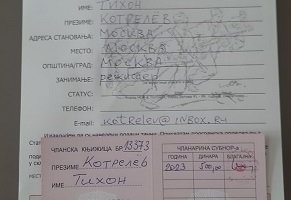 ИМЕ: ТИХОН
ПРЕЗИМЕ: КОТРЕЛЕВ
АДРЕСА СТАНОВАЊА: МОСКВА
МЕСТО: МОСКВА
ОПШТИНА/ГРАД: МОСКВА
ЗАНИМАЊЕ: режисер
СТАТУС:
ТЕЛЕФОН:
E-mail: kotrelev@INBOX.RU
ЧЛАНСКА КЊИЖИЦА БР. 13373
ПРЕЗИМЕ Котрелев
ИМЕ Тихон
ЧЛАНАРИНА СУБНОР-а
ГОДИНА ДИНАРА
2023 500,00